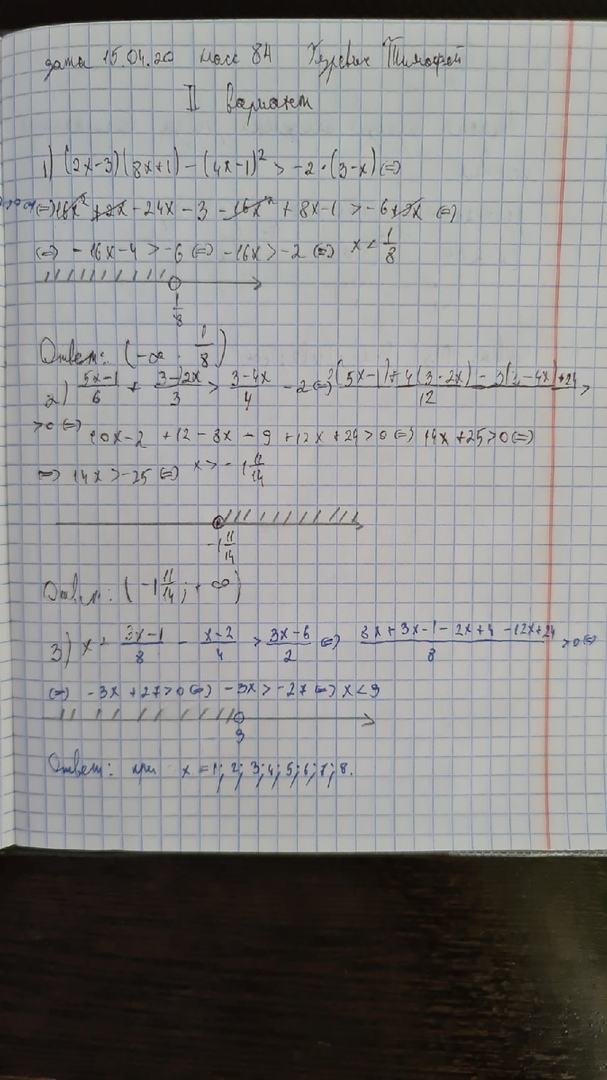 дата 15.04.20 класс 8А Гуревич Тимофей
II вариант
1) (2x-3)(8x+1) - (4x-1)² > -2·(3-x) ⇔
⇔ 16x² + 2x - 24x - 3 - 16x² + 8x - 1 > -6 + 2x ⇔
⇔ -16x - 4 > -6 ⇔ -16x > -2 ⇔ x < 1/8
1/8
Ответ: (-∞ ; 1/8)
2) (5x-1)/6 + (3-2x)/3 > (3-4x)/4 - 2 ⇔ (2(5x-1) + 4(3-2x) - 3(3-4x) + 24)/12 >
> 0 ⇔ 10x - 2 + 12 - 8x - 9 + 12x + 24 > 0 ⇔ 14x + 25 > 0 ⇔
⇔ 14x > -25 ⇔ x > -1 11/14
-1 11/14
Ответ: (-1 11/14; +∞)
3) x + (3x-1)/8 - (x-2)/4 > (3x-6)/2 ⇔ (8x + 3x - 1 - 2x + 4 - 12x + 24)/8 > 0 ⇔
⇔ -3x + 27 > 0 ⇔ -3x > -27 ⇔ x < 9
9
Ответ: при x = 1; 2; 3; 4; 5; 6; 7; 8.